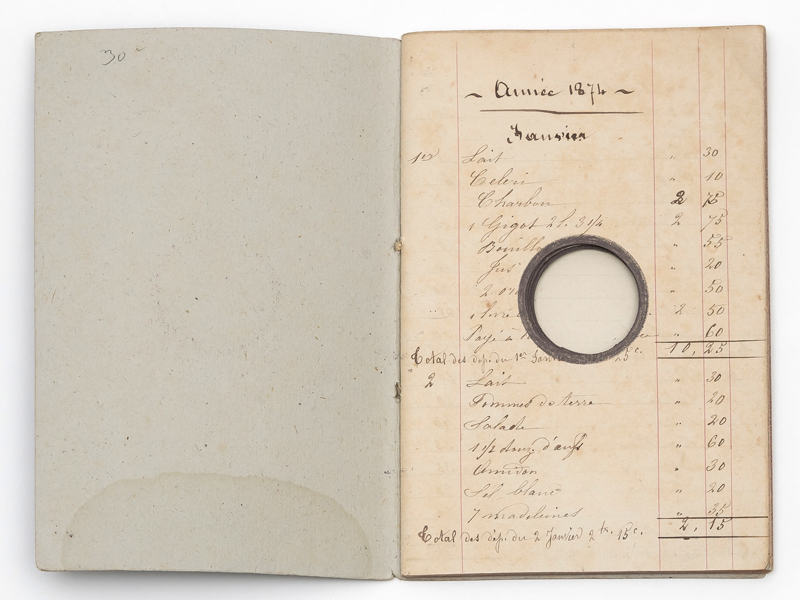 30
~ Année 1874 ~
Janvier
1er Lait " 30
Celeri " 10
Charbon 2 75
1 Gigot 2 l. 3 1/4 2 75
" 55
Jus " 20
2 " 50
2 50
Payé à " 60
Total des dép. du 1er 25 c. 10, 25
2 Lait " 30
Pommes de terre " 20
Salade " 20
1 1/2 douz. d'œufs " 60
Amidon " 30
Sel blanc " 20
7 madeleines " 35
Total des dép. du 2 Janvier 2 fr. 15 c. 2, 15